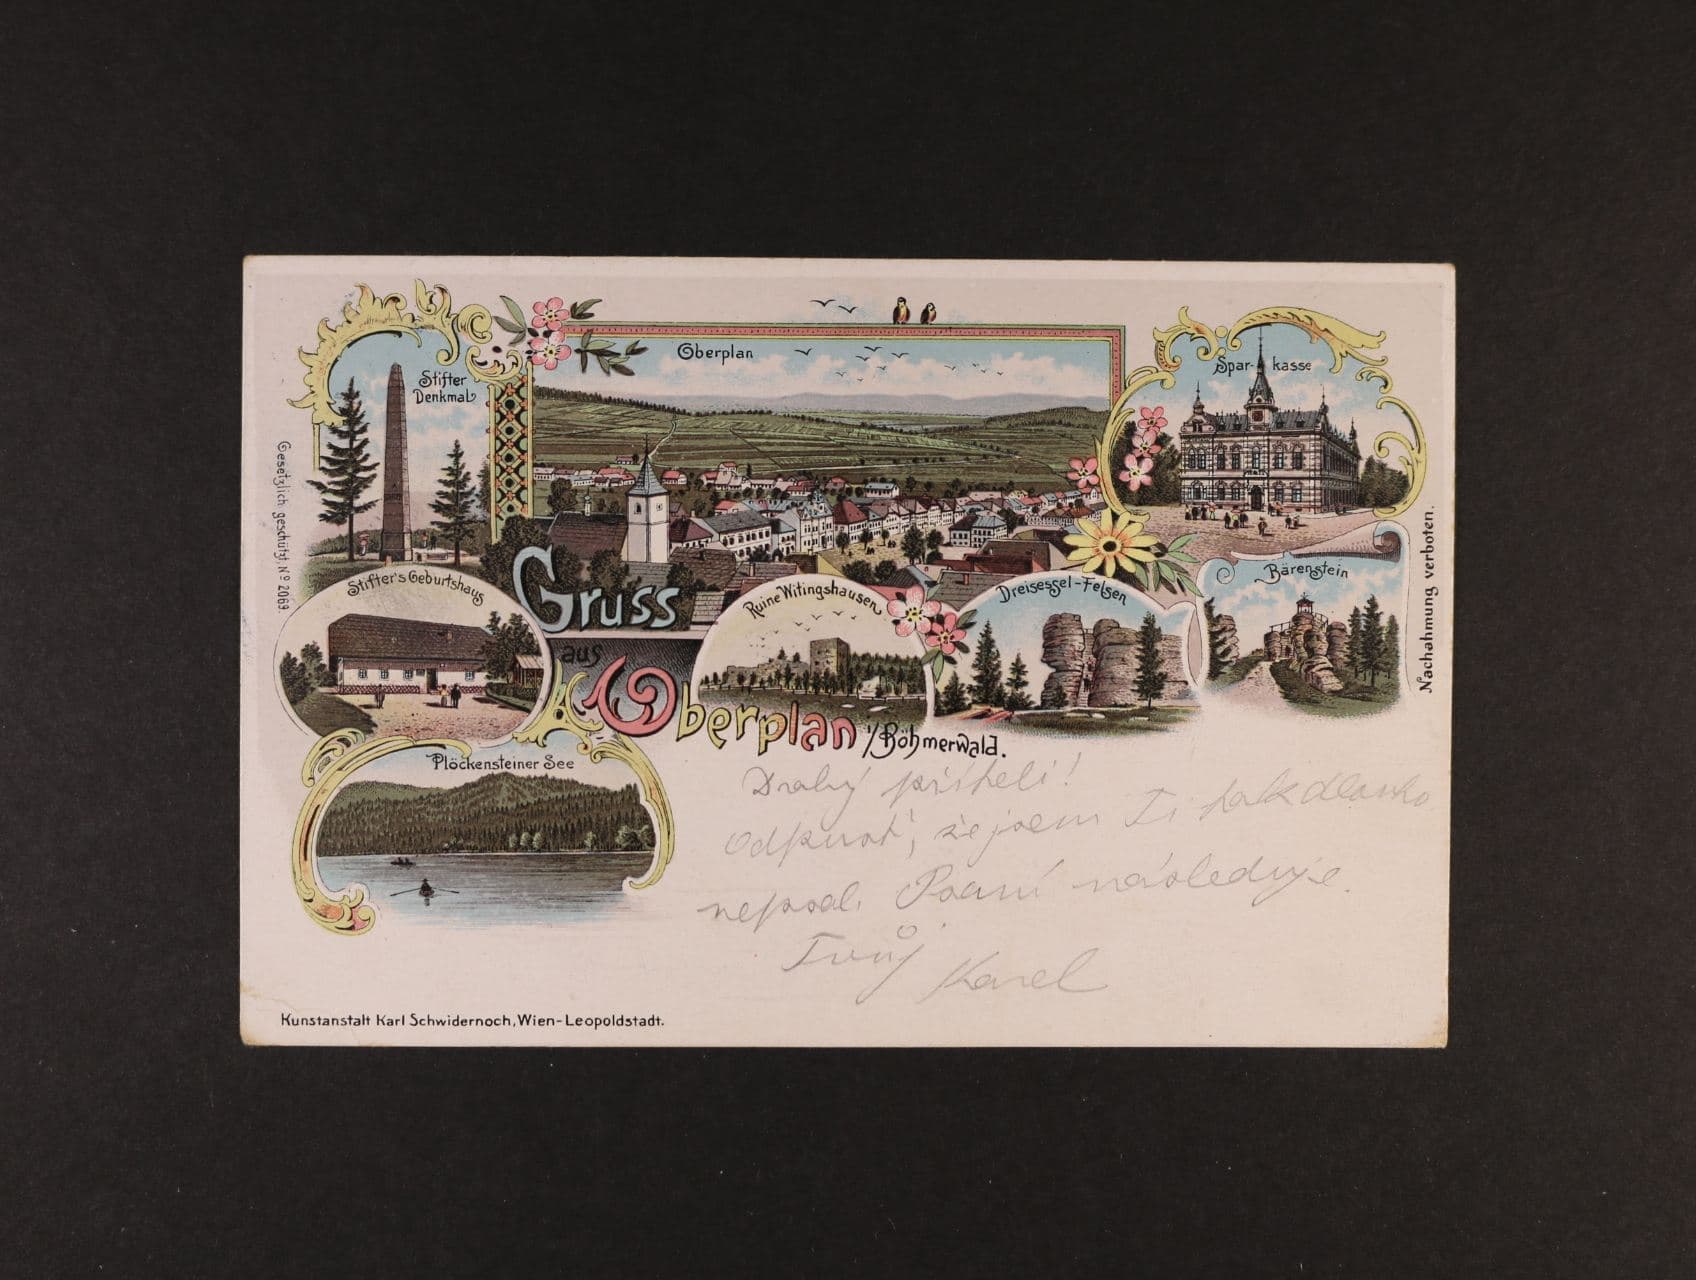 Stifter
Denkmal
Oberplan
Spar-kasse
Gesetzlich geschützt, Nº 2069
Stifter's Geburtshaus
Gruss
aus
Oberplan i/Böhmerwald.
Ruine Witingshausen
Dreisessel-Felsen
Bärenstein
Nachahmung verboten.
Plöckensteiner See
Drahý příteli!
Odpusť, že jsem Ti tak dlouho
nepsal. Psaní následuje.
Tvůj
Karel
Kunstanstalt Karl Schwidernoch, Wien-Leopoldstadt.